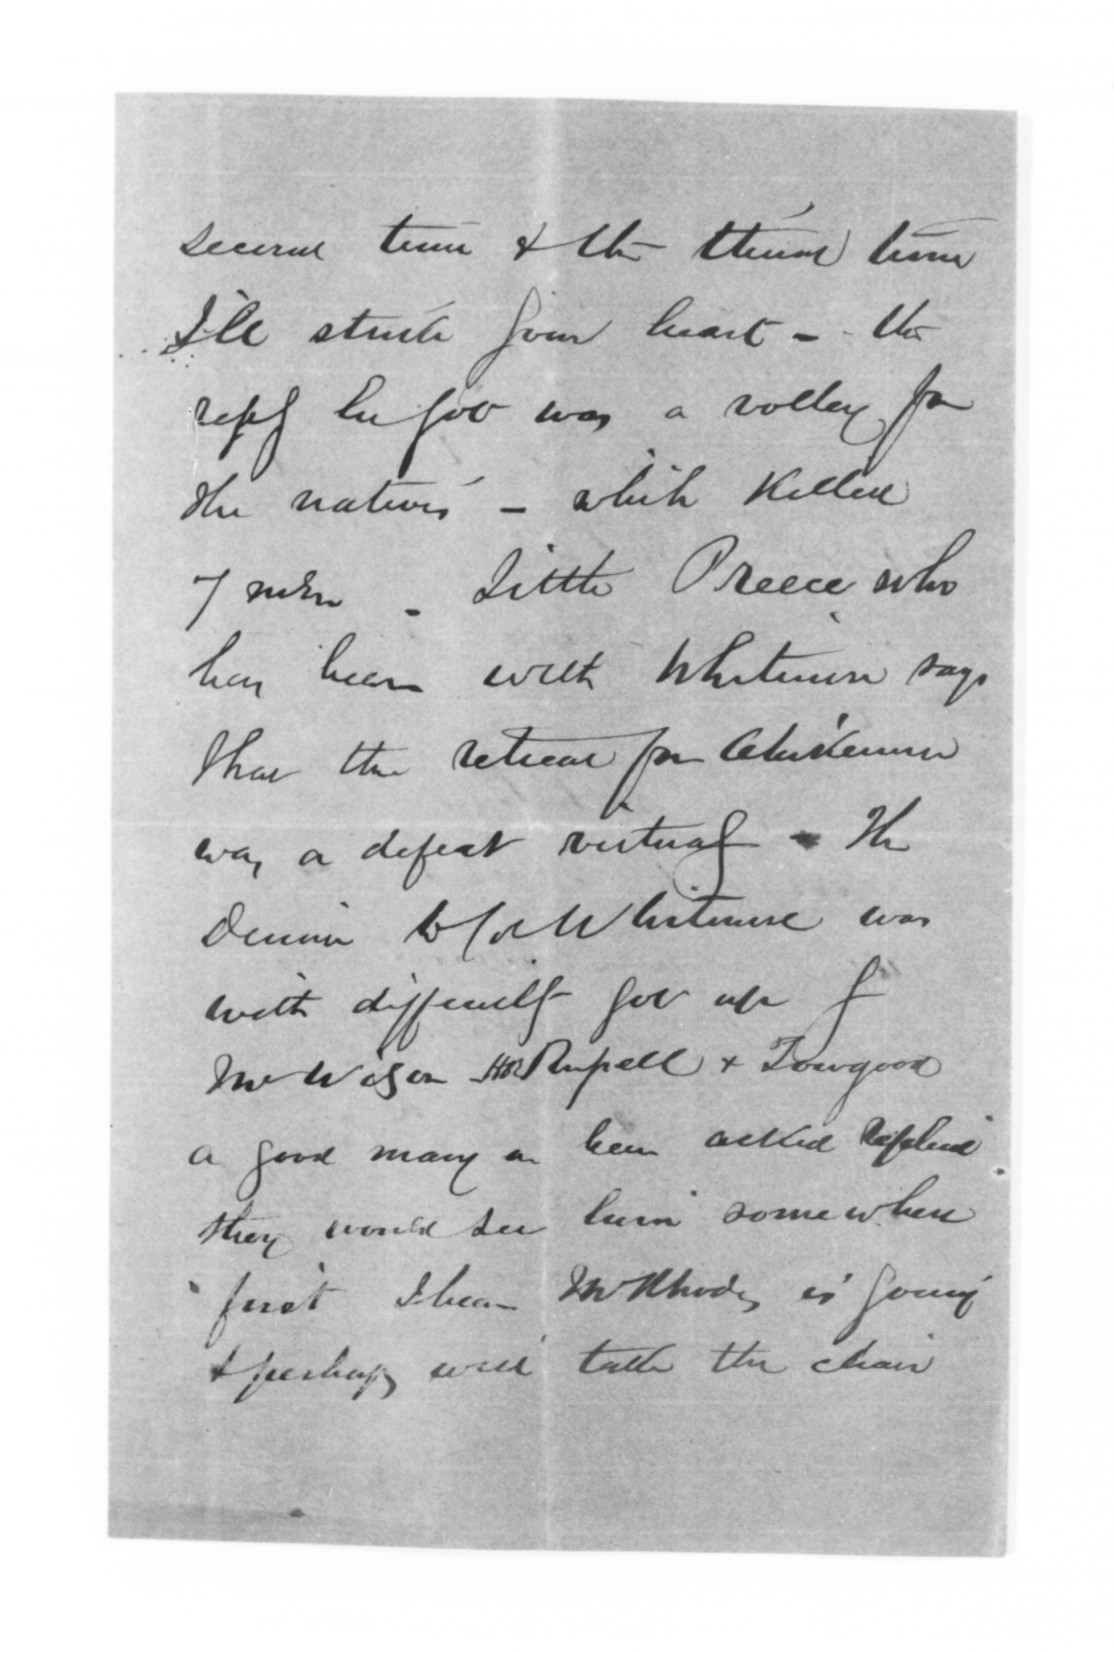 second time & the third time
I'll strike your heart - the
reply he got was a volley from
the natives - which killed
7 men - Little Preece who
has been with Whitmore says
that the retreat from
was a defeat virtually - The
dinner to Col Whitmore was
with difficulty got up by
Mr Wilson HR Russell & Towgood
a good many on been asked replied
they would see him somewhere
first I hear Mr Rhodes is going
& perhaps will take the chair